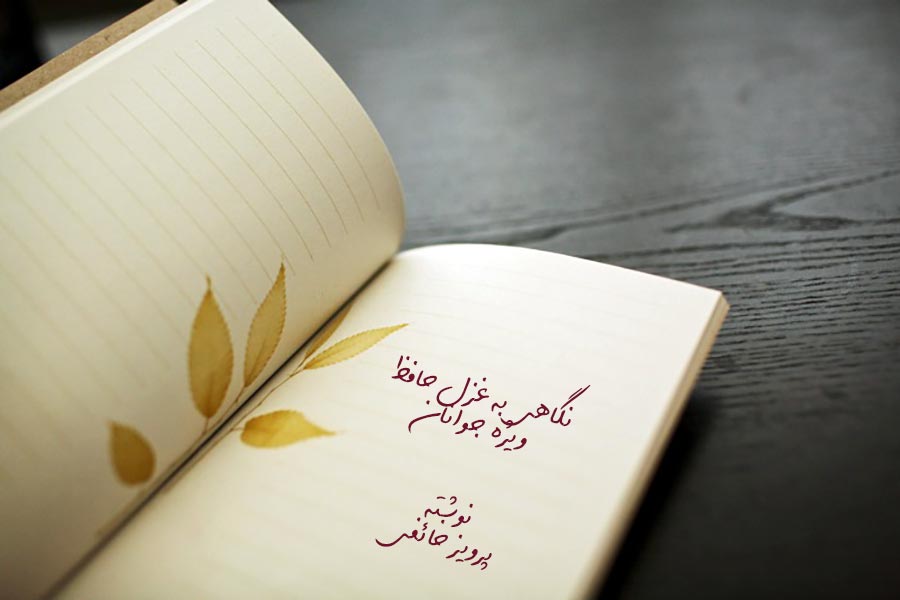 نگاهی به غزل حافظ
ویژه جوانان
نوشته
پرویز خائفی